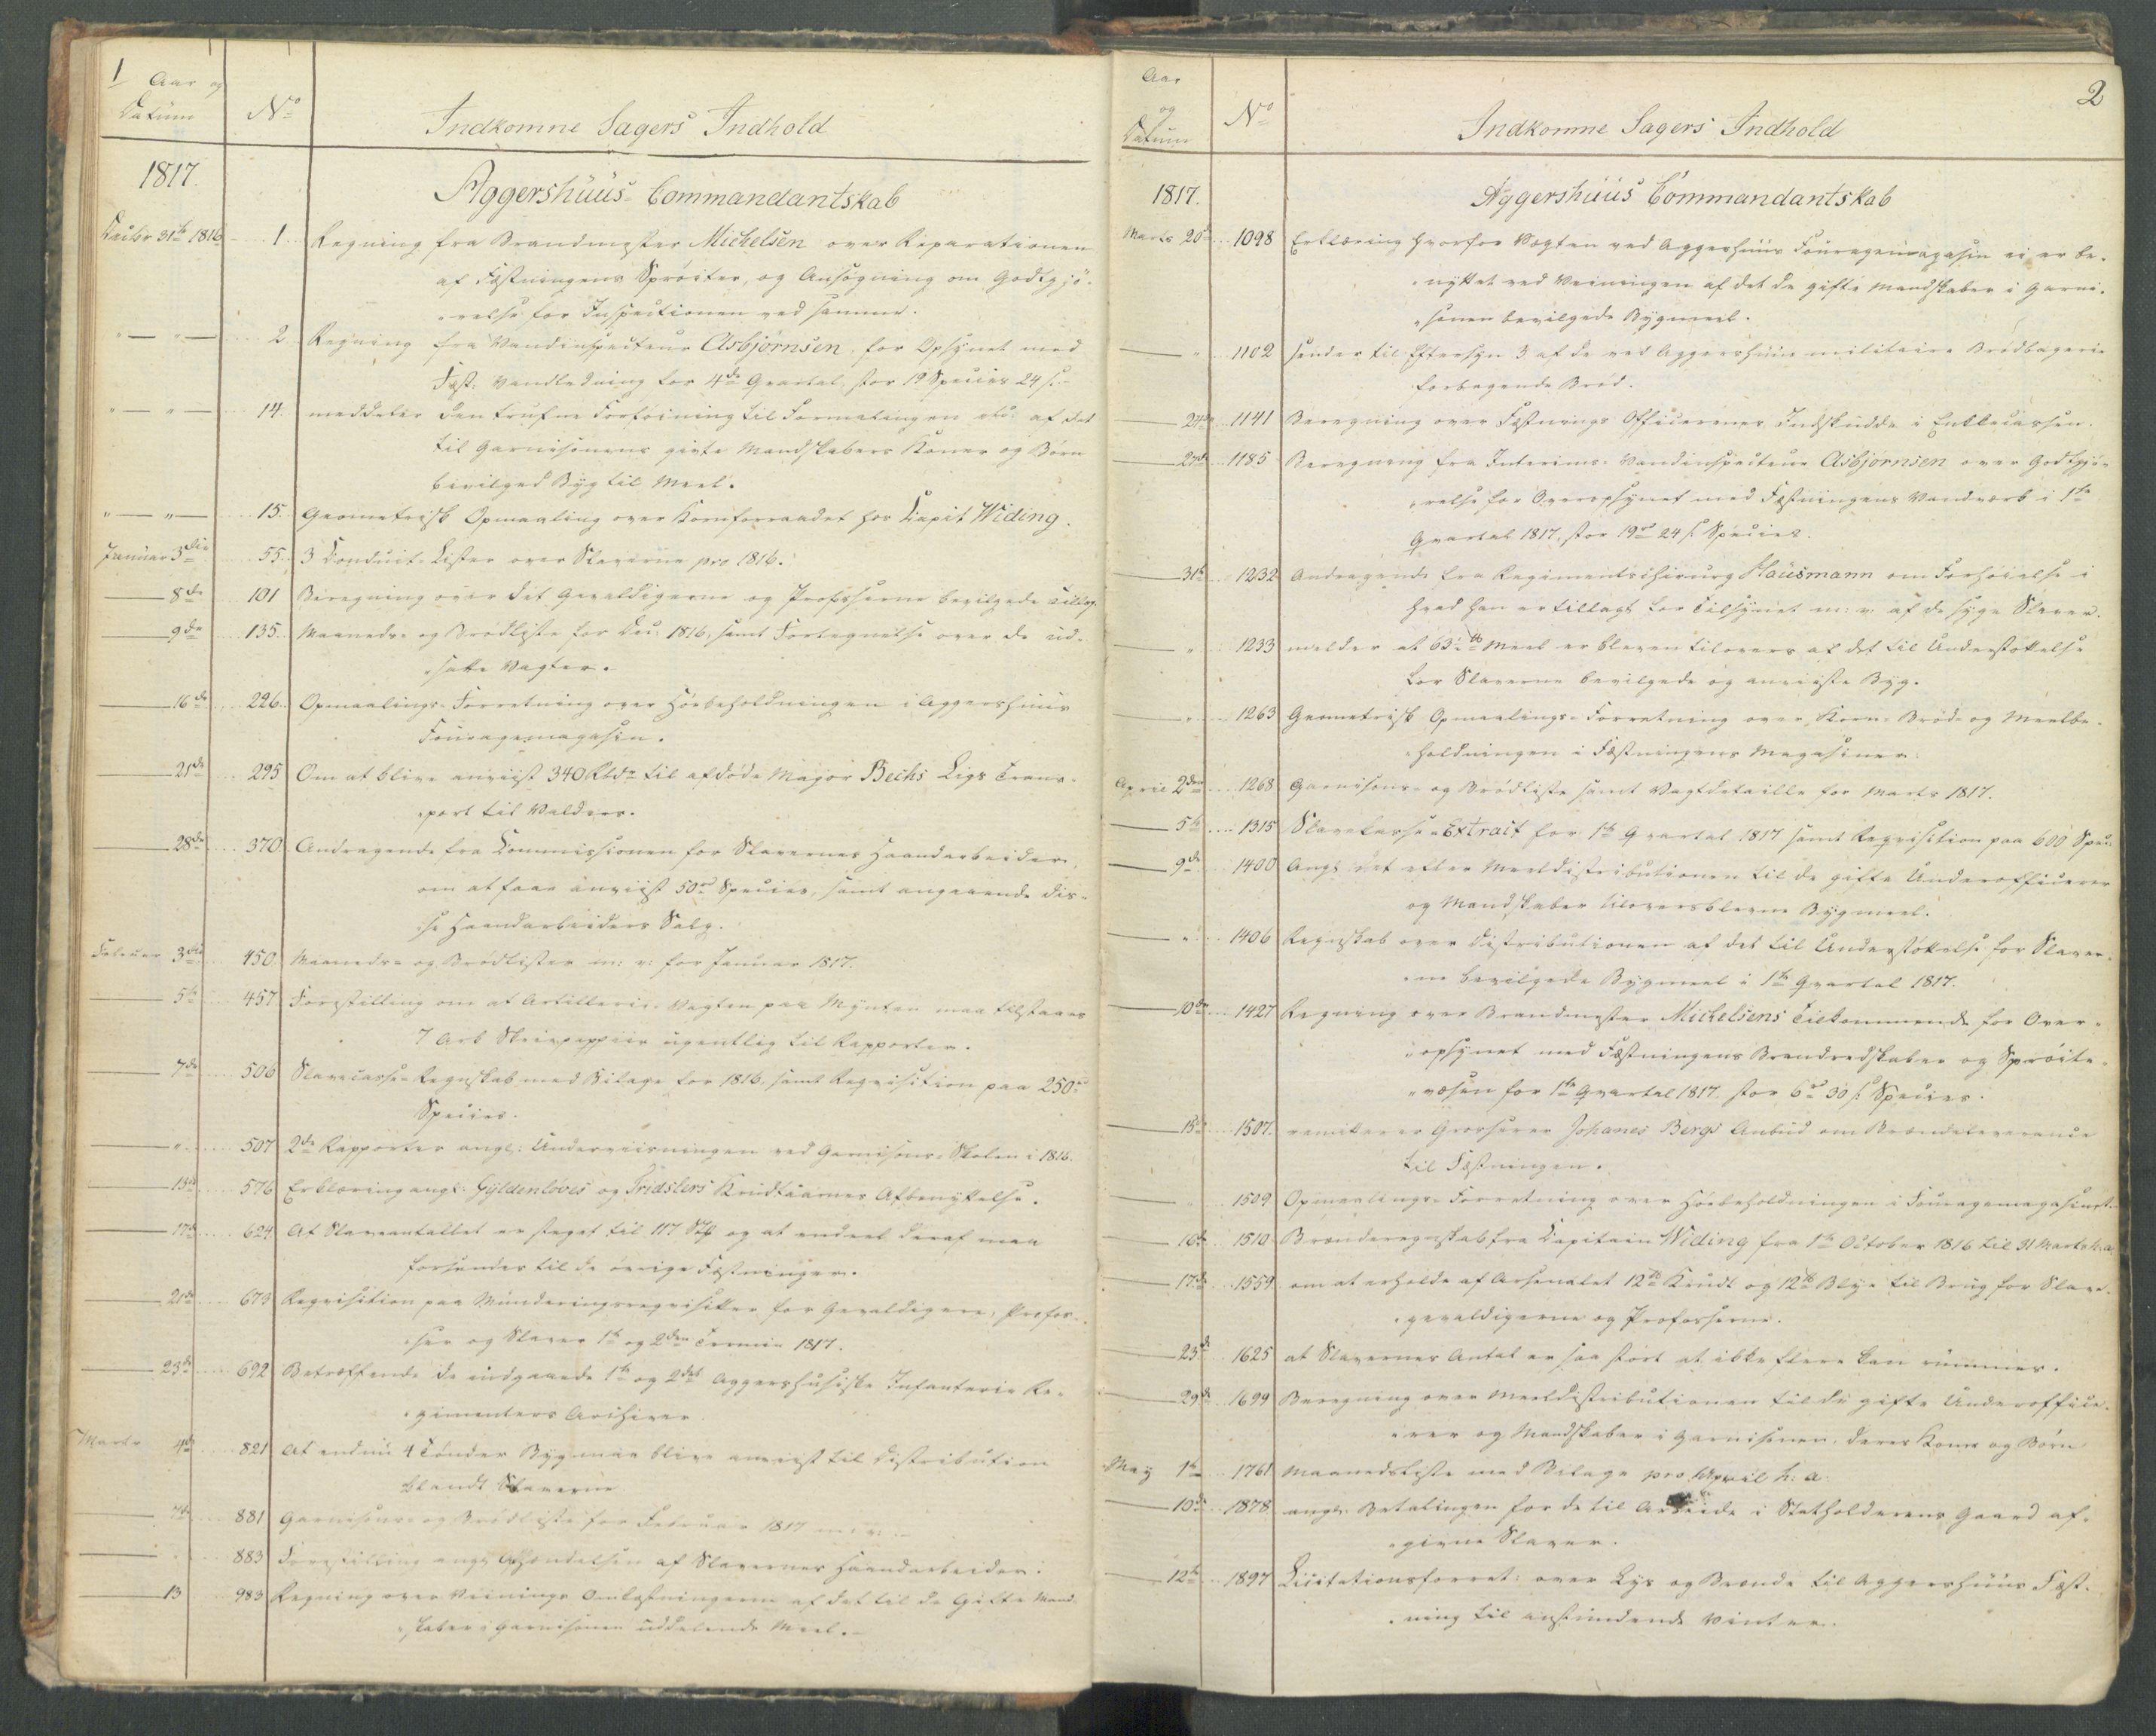 1
Aar og
Datum
No
Indkomne Sagers Indhold
1817.
Aggershuus Commandantskab
Decbr 31te 1816 1 Regning fra Brandmester Michelsen over Reparationen
af Fæstningens Sprøiter, og Ansøgning om Godtgjö-
relse for Inspectionen ved samme.
" — " — 2 Regning fra Vandinspecteur Asbjörnsen for Opsynet med
Fæst: Vandledning for 4de Qvartal, stor 19 Species 24 s.
" — " — 14. meddeler den trufne Forføining til Formalingen af det
til Garnisonens givte Mandskabers Koner og Børn
bevilged Byg til Meel.
" — " — 15. Geometrisk Opmaaling over Kornforraadet hos Capit Widing.
Januar 3die 55. 3 Conduit-Lister over Slaverne pro 1816.
8de 101 Beregning over det Gevaldigerne og Profosserne bevilgede Tillæg.
9de 135. Maaneds- og Brødliste for Dec: 1816, samt Fortegnelse over de ud-
satte Vagter.
16de 226. Opmaalings-Forretning over Höebeholdningen i Aggershuus
Fouragemagasin.
21de 295 Om at blive anviist 340 Rbdr til afdöde Major Bechs Ligs Trans-
port til Valders.
28de 370. Andragende fra Commissionen for Slavernes Haandarbeider,
om at faae anviist 50 Species, samt angaaende dis-
se Haandarbeiders Salg.
Februar 3die 450. Maaneds- og Brödlister m: v: for Januar 1817.
5te 457 Forestilling om at Artillerie-Vagten paa Mynten maa tilstaaes
7 Ark Skrivpapiir ugentlig til Rapporter.
7de 506 Slavecasse-Regnskab med Bilage for 1816, samt Reqvisition paa 250
Species.
" 507 2de Rapporter angl: Underviisningen ved Garnisons-Skolen i 1816.
13de 576 Erklæring angl: Gyldenlöves og Tridslers Krudttaarnes Afbenyttelse.
17de 624. At Slaveantallet er steget til 117 Stk og at endeel deraf maa
forsendes til de övrige Fæstninger.
21de 673 Reqvisition paa Munderingsreqvisitter for Gevaldigere, Profos-
ser og Slaver 1te og 2den Termin 1817.
23de 692 Betræffende de indgaaende 1te og 2det Aggershusiske Infanterie Re-
gimenters Archiver.
Marts 4de 821 At endnu 4 Tönder Byg maa blive anviist til Distribution
blandt Slaverne
7de 881 Garnisons- og Brödliste for Februar 1817 m: v:
883 Forestilling angl: Afhændelsen af Slavernes Haandarbeider.
13 983 Regning over Veinings Omkostningerne af det til de Gifte Mand-
skaber i Garnisonen uddelende Meel.
2
Aar
og
Datum
No
Indkomne Sagers Indhold
1817.
Aggershuus Commandantskab
Marts 20de 1098 Erklæring hvorfor Vægten ved Aggershuus Fouragemagasin ei er be-
nyttet ved Veiningen af det de gifte Mandskaber i Garni-
sonen bevilgede Bygmeel.
" 1102 sender til Eftersyn 3 af de ved Aggershuus militaire Brödbageri
forbagende Bröd.
24de 1141 Beregning over Fæstnings Officerernes Indskudde i Enkecassen.
27de 1185 Beregning fra Interims-Vandinspecteur Asbjörnsen over Godtgjö-
relse for Overopsynet med Fæstningens Vandværk i 1te
Qvartal 1817, stor 19 24 s Species.
31te 1232 Andragende fra Regimentschirurg Hausmann om Forhöielse i
hvad han er tillagt for Tilsynet m: v: af de syge Slaver.
" 1233 melder at 63 Meel er bleven tilovers af det til Understøttelse
for Slaverne bevilgede og anviiste Byg.
" 1263 Geometrisk Opmaalings-Forretning over Korn- Bröd- og Meelbe-
holdningen i Fæstningens Magasiner.
April 2den 1268 Garnisons- og Brödliste samt Vagtdetaille for Marts 1817.
5te 1315 Slavekasse-Extract for 1te Qvartal 1817 samt Reqvisition paa 600 Spec:
9de 1400 Angl: det efter Meeldistributionen til de gifte Underofficerer
og Mandskaber tiloversblevne Bygmeel.
" 1406 Regnskab over Distributionen af det til Understøttelse for Slaver-
ne bevilgede Bygmeel i 1te Qvartal 1817.
10de 1427 Regning over Brandmester Michelsens Tilkommende for Over-
opsynet med Fæstningens Brandredskaber og Spröite-
væsen for 1te Qvartal 1817. stor 6 30 s Species.
15de 1507. remitterer Grosserer Johanes Bergs Anbud om Brændeleverance
til Fæstningen.
1509 Opmaalings-Forretning over Höebeholdningen i Fouragemagasinet.
16de 1510 Brænderegnskab fra Capitain Widing fra 1te October 1816 til 31 Marts h: a:
17de 1559 om at erholde af Arsenalet 12 Krudt og 12 Blye til Brug for Slave-
gevaldigerne og Profosserne.
23de 1625 at Slavernes Antal er saa stort at ikke flere kan rummes.
29de 1699 Beregning over Meeldistributionen til de gifte Underoffice-
rer og Mandskaber i Garnisonen, deres Koner og Börn
May 1te 1761 Maanedsliste med Bilage pro April h: a:
10de 1878. angl: Betalingen for de til Arbeide i Statholderens Gaard af-
givne Slaver.
12te 1897 Licitationsforret: over Lys og Brænde til Aggershuus Fæst-
ning til anstundende Vinter.